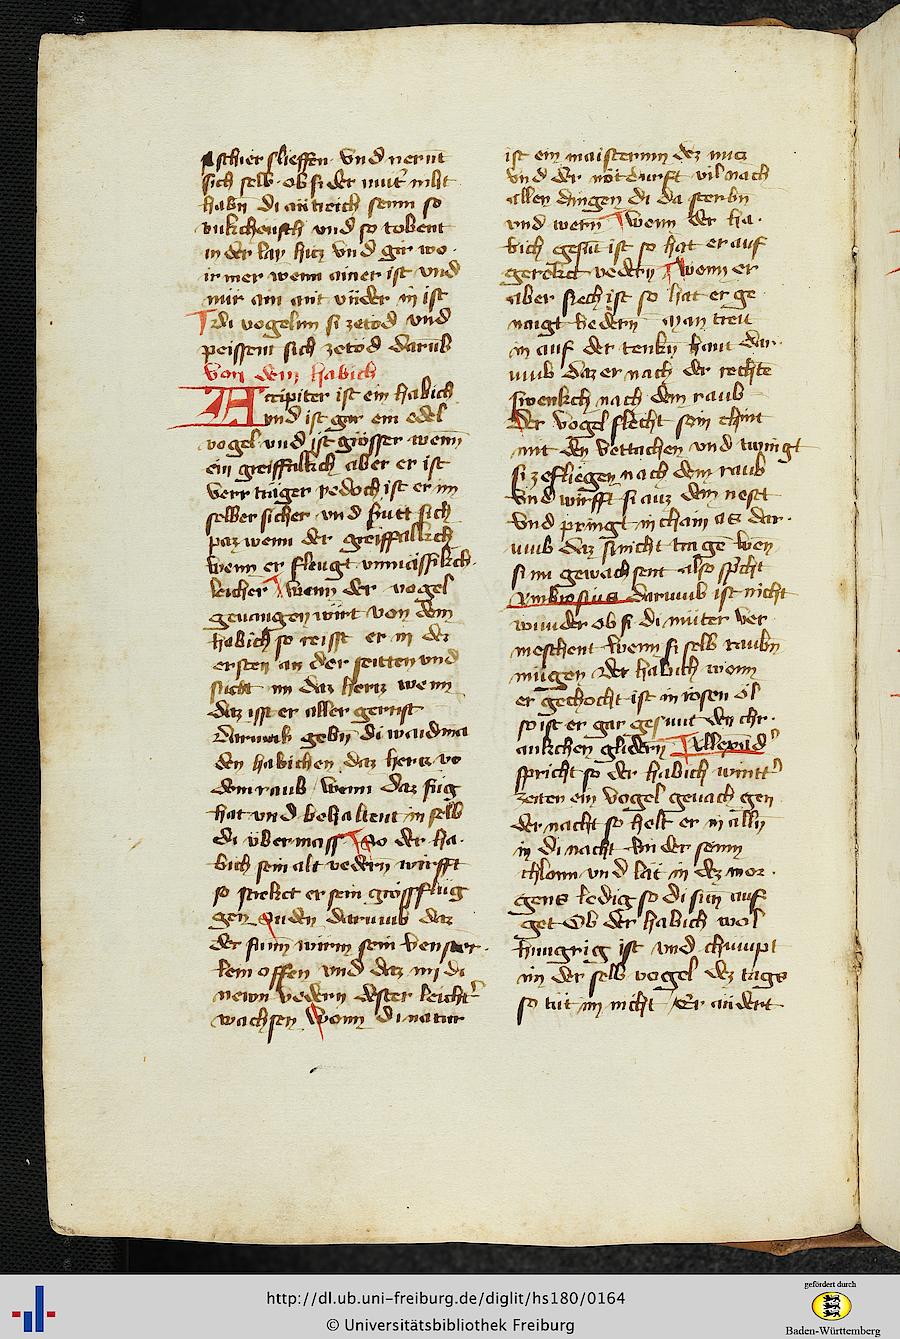 schier slieffen vnd nernt
sich selb ob si der mut niht
habn di
vnkcheusch vnd so tobent
in der lay hicz vnd gir wo
ir mer wenn ainer ist vnd
mir am ant in ist
di vogelnn si zetod vnd
peissent sich zetod darub
Von dem habich
Accipiter ist ein habich
vnd ist gar ein edel
vogel vnd ist grösser wenn
ein greiffalkch aber er ist
verr träger yedoch ist er im
selber sicher vnd hütt sich
paz wenn der greiffalkch
wenn er fleugt vnmässikch
leicher wenn der vogel
geuangen wirt von dem
habich so reisst er in dez
ersten an der seitten vnd
sucht im daz hercz wenn
daz isst er aller gernist
Darumb gebn di waidma
den habichen daz hercz vo
dem raub wenn daz füg
hat vnd behaltent in selb
di übermass So der ha
bich sein alt vedern wirfft
so strekct er sein grossflüg
gen suden darumb daz
der sunn wirm sein venster
lein offen vnd daz im di
newn vedern dester leicht
wachsen wenn di natur
ist ein maisterinn dez nucz
vnd der nötdurft vil nach
allen dingen di da sterbn
vnd wern wenn der ha
bich gesunt ist so hat er auf
gerekct vedern wenn er
aber siech ist so hat er ge
naigt vedern Man treit
in auf der tenkn hant dar
umb daz er nach der rechte
swenkch nach dem raub
Der vogel slecht sein chint
mit den vettachen vnd twingt
si zefliegen nach dem raub
vnd wirfft si auz dem nest
vnd pringt in chain as dar
umb daz si nicht trag wen
si nu gewachsent also spicht
Ambrosius darumb ist nicht
wunder ob si di müter ver
smehent wenn si selb raubn
mügen Der habich wenn
er gechocht ist in rosen öl
so ist er gar gesunt den chr
ankchen glidern Allexand
spricht so der habich wintt
zeiten ein vogel geuach gen
der nacht so helt er in alln
in di nacht bei der senn
chlonn vnd lät in dez mor
gens ledig so di sun auf
get Ob der habich wol
hungrig ist vnd chumpt
im der selb vogel dez tags
so tüt im nicht Er ändert
http://dl.ub.uni-freiburg.de/diglit/hs180/0164
© Universitätsbibliothek Freiburg
gefördert durch
Baden-Württemberg